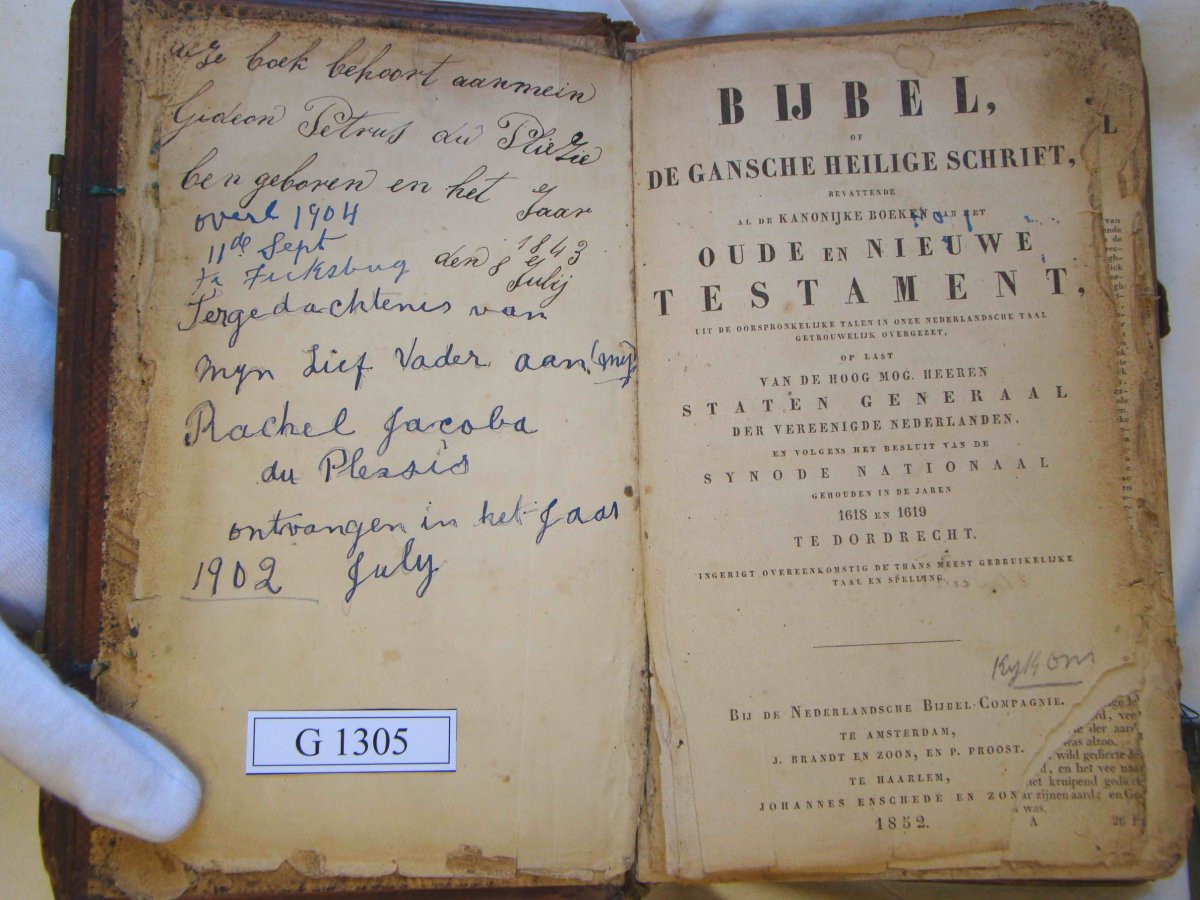 deze boek behoort aan mein
Gideon Petrus du Pliezie
ben geboren en het Jaar
1843
den 8 Julij
overl 1904
11de Sept
te Ficksbug
Tergedachtenis van
myn Lief Vader aan (my)
Rachel Jacoba
du Plessis
ontvangen in het Jaar
1902 July
G 1305
BIJBEL,
OF
DE GANSCHE HEILIGE SCHRIFT,
BEVATTENDE
AL DE KANONIJKE BOEKEN VAN HET
OUDE EN NIEUWE
TESTAMENT,
UIT DE OORSPRONKELIJKE TALEN IN ONZE NEDERLANDSCHE TAAL
GETROUWELIJK OVERGEZET,
OP LAST
VAN DE HOOG MOG. HEEREN
STATEN GENERAAL
DER VEREENIGDE NEDERLANDEN,
EN VOLGENS HET BESLUIT VAN DE
SYNODE NATIONAAL
GEHOUDEN IN DE JAREN
1618 EN 1619
TE DORDRECHT.
INGERIGT OVEREENKOMSTIG DE THANS MEEST GEBRUIKELIJKE
TAAL EN SPELLING.
Kyk om
BIJ DE NEDERLANDSCHE BIJBEL-COMPAGNIE.
TE AMSTERDAM,
J. BRANDT EN ZOON, EN P. PROOST.
TE HAARLEM,
JOHANNES ENSCHEDÉ EN ZON
1852.
L
van
der aard
was alzoo.
wild gedierte
en het vee naar
kruipend gedierte
zijnen aard; en
was.
A